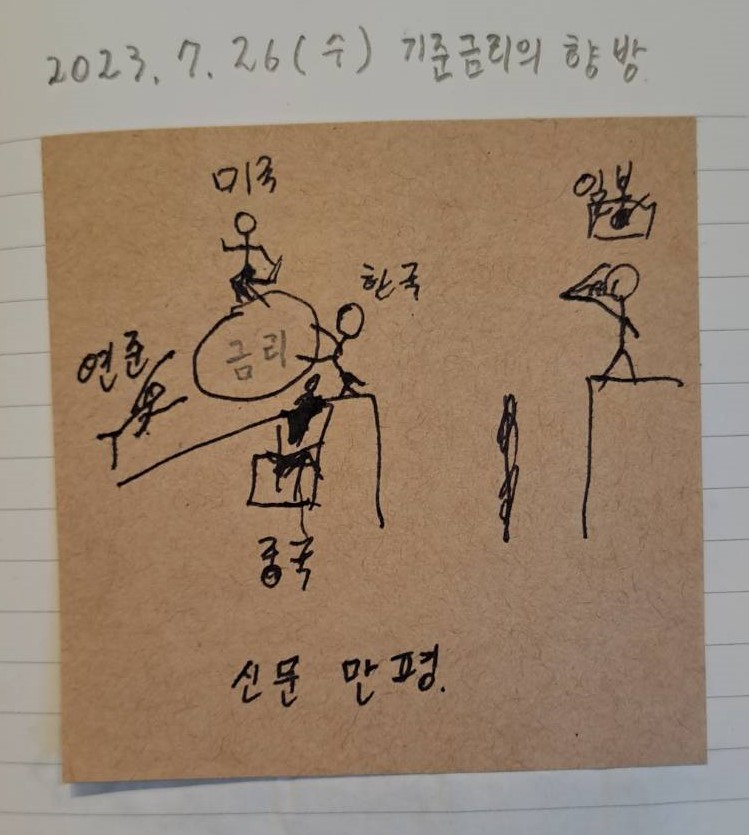 2023. 7. 26(수) 기준금리의 향방
미국
일본
한국
연준
금리
중국
신문 만평.